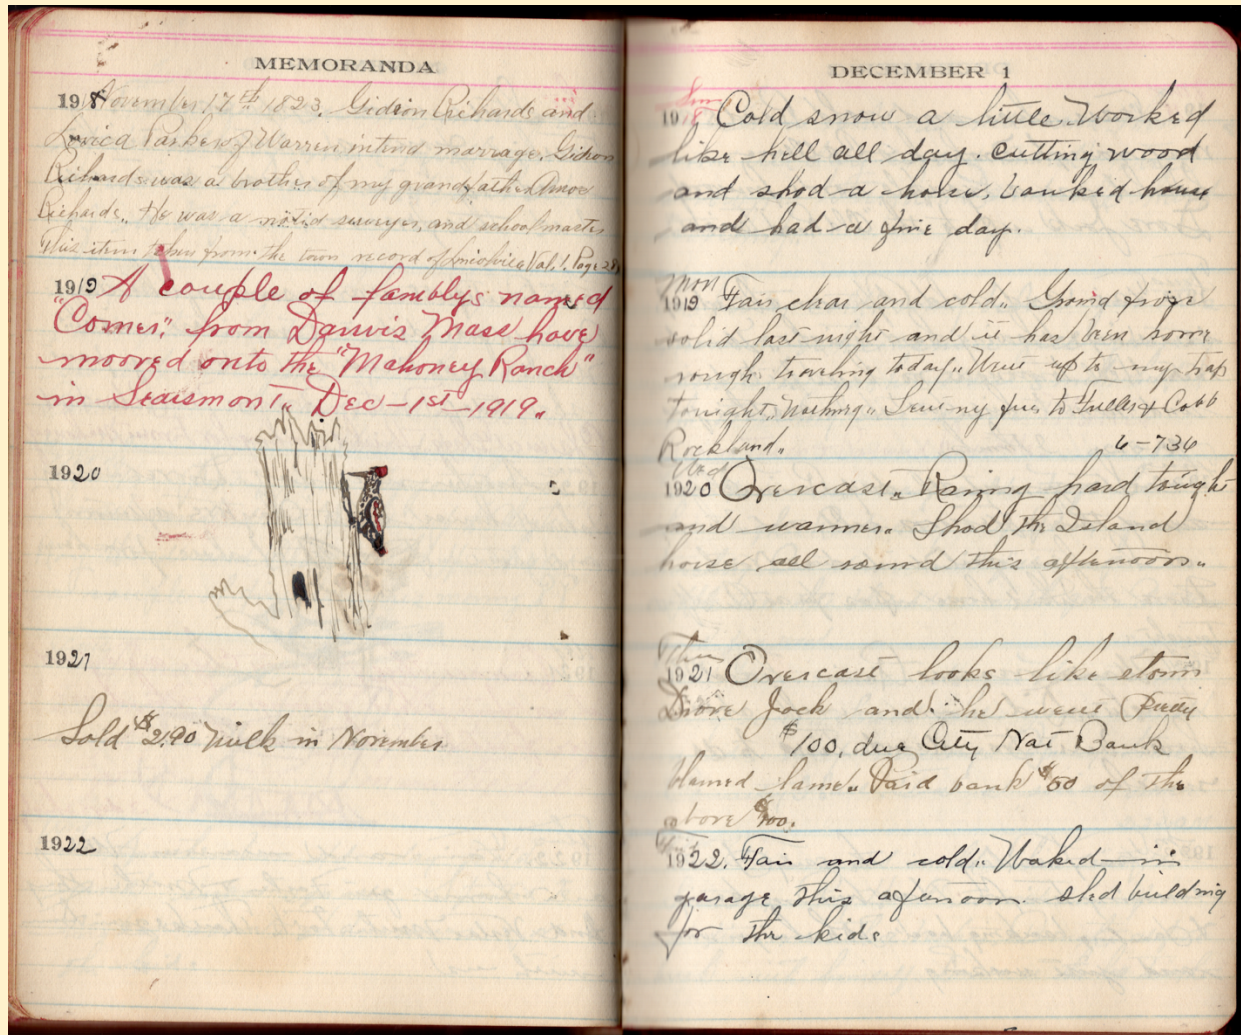 MEMORANDA
1918 November 17th 1823. Gideon Richards and
Lovica Parker of Warren intend marrage. Gideon
Richards was a brother of my grandfather Amos
Richards.. He was a noted surveyer, and school master.
This item taken from the town record of Vol. 1. Page 28
1919 A couple of famblys named
"Comer," from Danvis Mass have
mooved onto the "Mahoney Ranch"
in Searsmont,, Dec-1st-1919..
1920
1921
Sold $2.90 milk in November
1922
DECEMBER 1
Sun
1918 Cold snow a little. Worked
like hell all day. cutting wood
and shod a horse, banked house
and had a fine day.
Mon
1919 Fair clear and cold.. Ground froze
solid last night and it has been some
rough traveling today.. Went up to my trap
tonight,, Nothing.. Sent my furs to Fuller & Cobb
Rockland..
6-736
Wed
1920 Overcast.. Raning hard tonight
and warmer.. Shod the Island
horse all round this afternoon..
Thur
1921 Overcast looks like storm
Drove Jack and he went Pretty
$100. due City Nat Bank
blamed lame.. Paid bank $50 of the
above $100.
Fri
1922. Fair and cold.. Woked in
garage this afternoon. sled building
for the kids